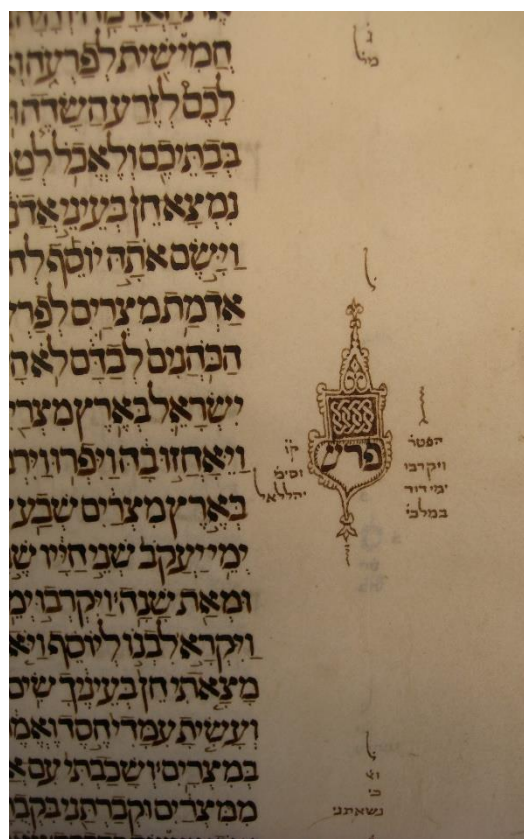 חֲמִישִׁית לְפַרְעֹה וְ
לָכֶם לְזֶרַע הַשָּׂדֶה וּ
בְּבָתֵּיכֶם וְלֶאֱכֹל לְטַ
נִמְצָא חֵן בְּעֵינֵי אֲדֹנִ
וַיָּשֶׂם אֹתָהּ יוֹסֵף לְח
אַדְמַת מִצְרַיִם לְפַרְ
הַכֹּהֲנִים לְבַדָּם לֹא הָ
יִשְׂרָאֵל בְּאֶרֶץ מִצְרַי
וַיֵּאָחֲזוּ בָהּ וַיִּפְרוּ וַיִּר
בְּאֶרֶץ מִצְרַיִם שְׁבַע עֶ
יְמֵי יַעֲקֹב שְׁנֵי חַיָּיו שֶׁ
וּמְאַת שָׁנָה וַיִּקְרְבוּ יְמֵ
וַיִּקְרָא לִבְנוֹ לְיוֹסֵף וַיֹּא
מָצָאתִי חֵן בְּעֵינֶיךָ שִׂים
וְעָשִׂיתָ עִמָּדִי חֶסֶד וֶאֱמֶ
בְּמִצְרָיִם וְשָׁכַבְתִּי עִם אֲ
מִמִּצְרַיִם וּקְבַרְתַּנִי בִּקְבֻ
נ
מל
הפטר
ויקרבו
ימי דוד
במלכי
פרש
קו
וסימ
יהללאל
נשאתני